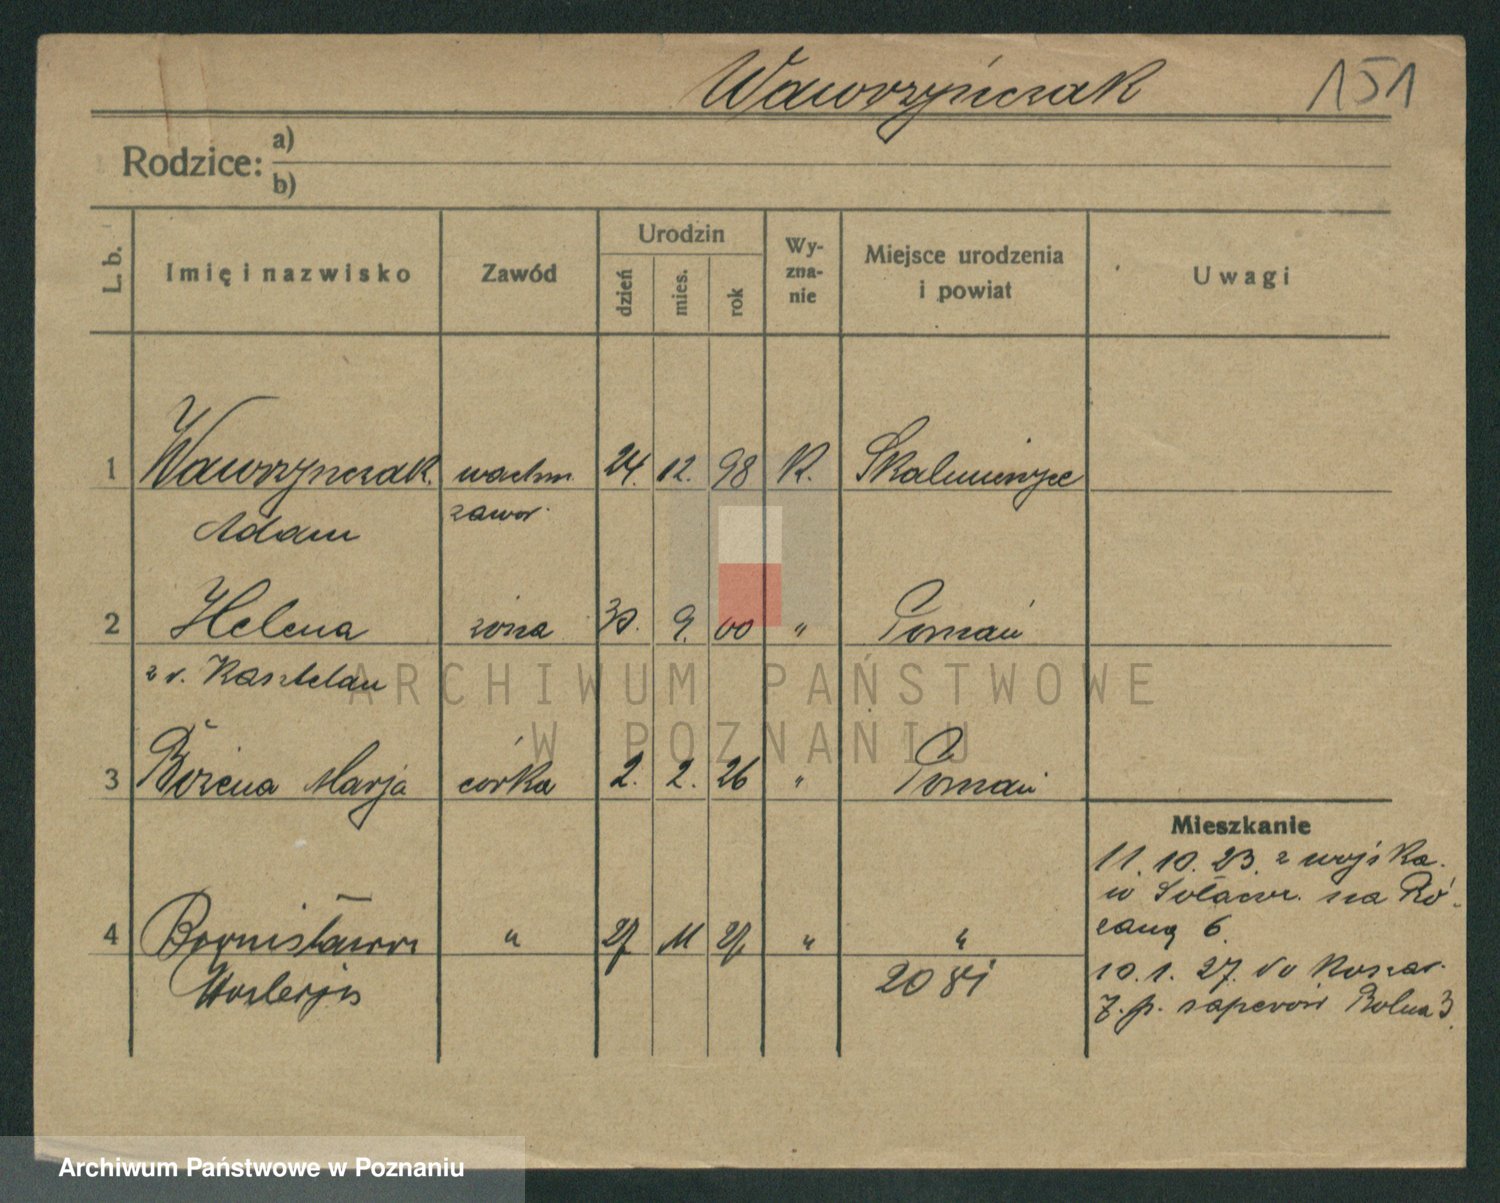 Wawrzyńczak 151
Rodzice: a)
b)
L. b. Imię i nazwisko Zawód Urodzin dzień mies. rok Wy-zna-nie Miejsce urodzenia i powiat Uwagi
1 Wawrzynczak wachm. 24. 12. 98 K. Skalmierzyce
Adam zawod.
2 Helena żona 30. 9. 00 " Poznań
z d. Kasztelan
3 Bożena Marja córka 2. 2. 26 " Poznań
Mieszkanie
11. 10. 23. z wojska.
w Sołaczu. na Ró-
żaną 6.
4 Bronisława " 27 11 27. " "
2081
10. 1. 27. do Koszar.
7. p. saperów Rolna 3.
ARCHIWUM PAŃSTWOWE
W POZNANIU
Archiwum Państwowe w Poznaniu